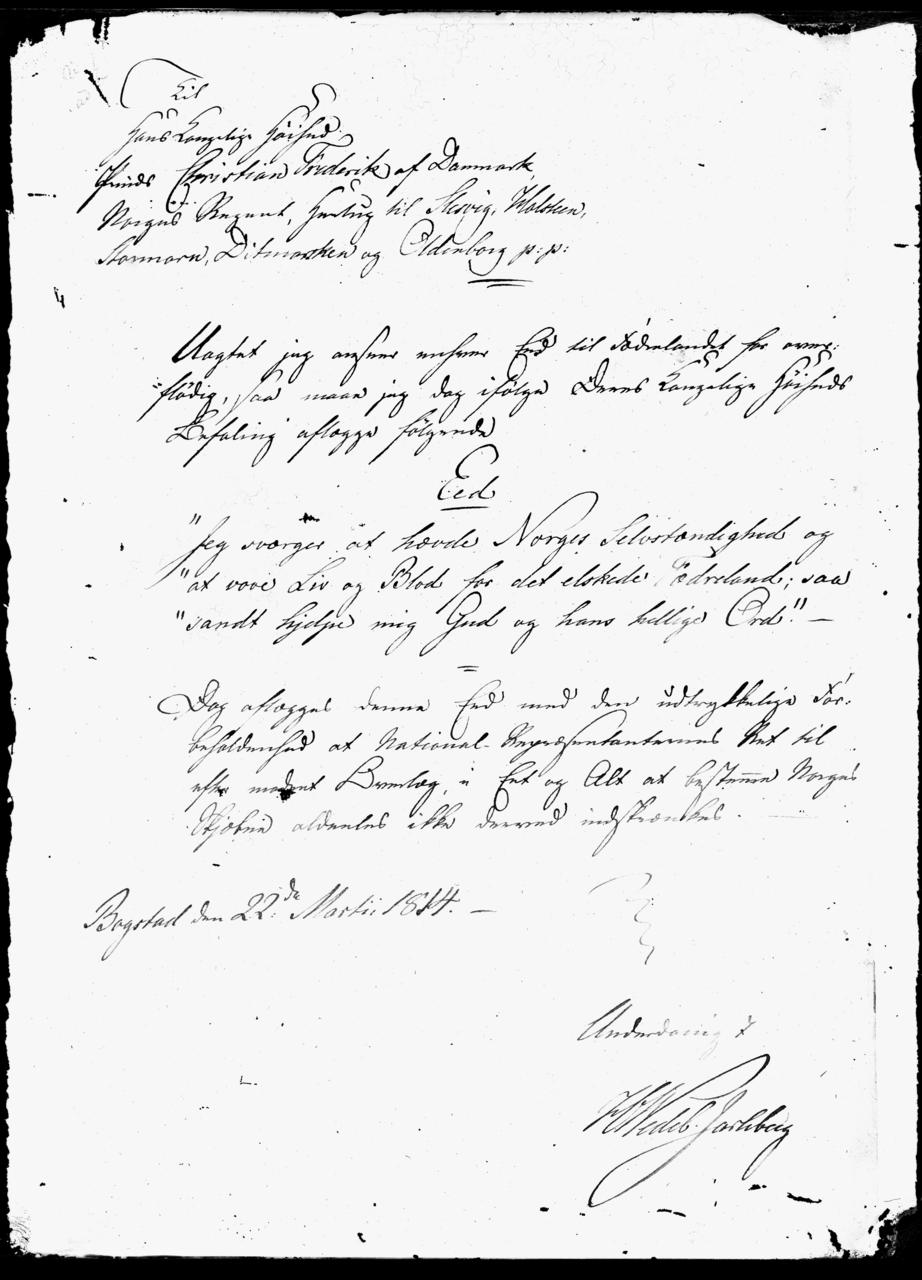 Til
Hans Kongelige Høihed
Prinds Christian Frederik af Danmark,
Norges Regent, Hertug til Slesvig, Holsten,
Stormarn, Ditmarsken og Oldenborg p: p:
Uagtet jeg anseer enhver Eed til Fædrelandet for over:
flødig, saa maae jeg dog ifølge Deres Kongelige Høiheds
Befaling aflægge følgende
Eed
"Jeg sværger at hævde Norges Selvstændighed og
"at vove Liv og Blod for det elskede Fædreland; saa
"sandt hjelpe mig Gud og hans hellige Ord." —
Dog aflægges denne Eed med den udtrykkelige For:
beholdenhed at National-Repræsentanternes Ret til
efter modent Overlæg, i Eet og Alt at bestemme Norges
Skjæbne aldeeles ikke derved indskrænkes.
Bogstad den 22: de Martii: 1814. —
Underdanigst
HWedel-Jarlsberg